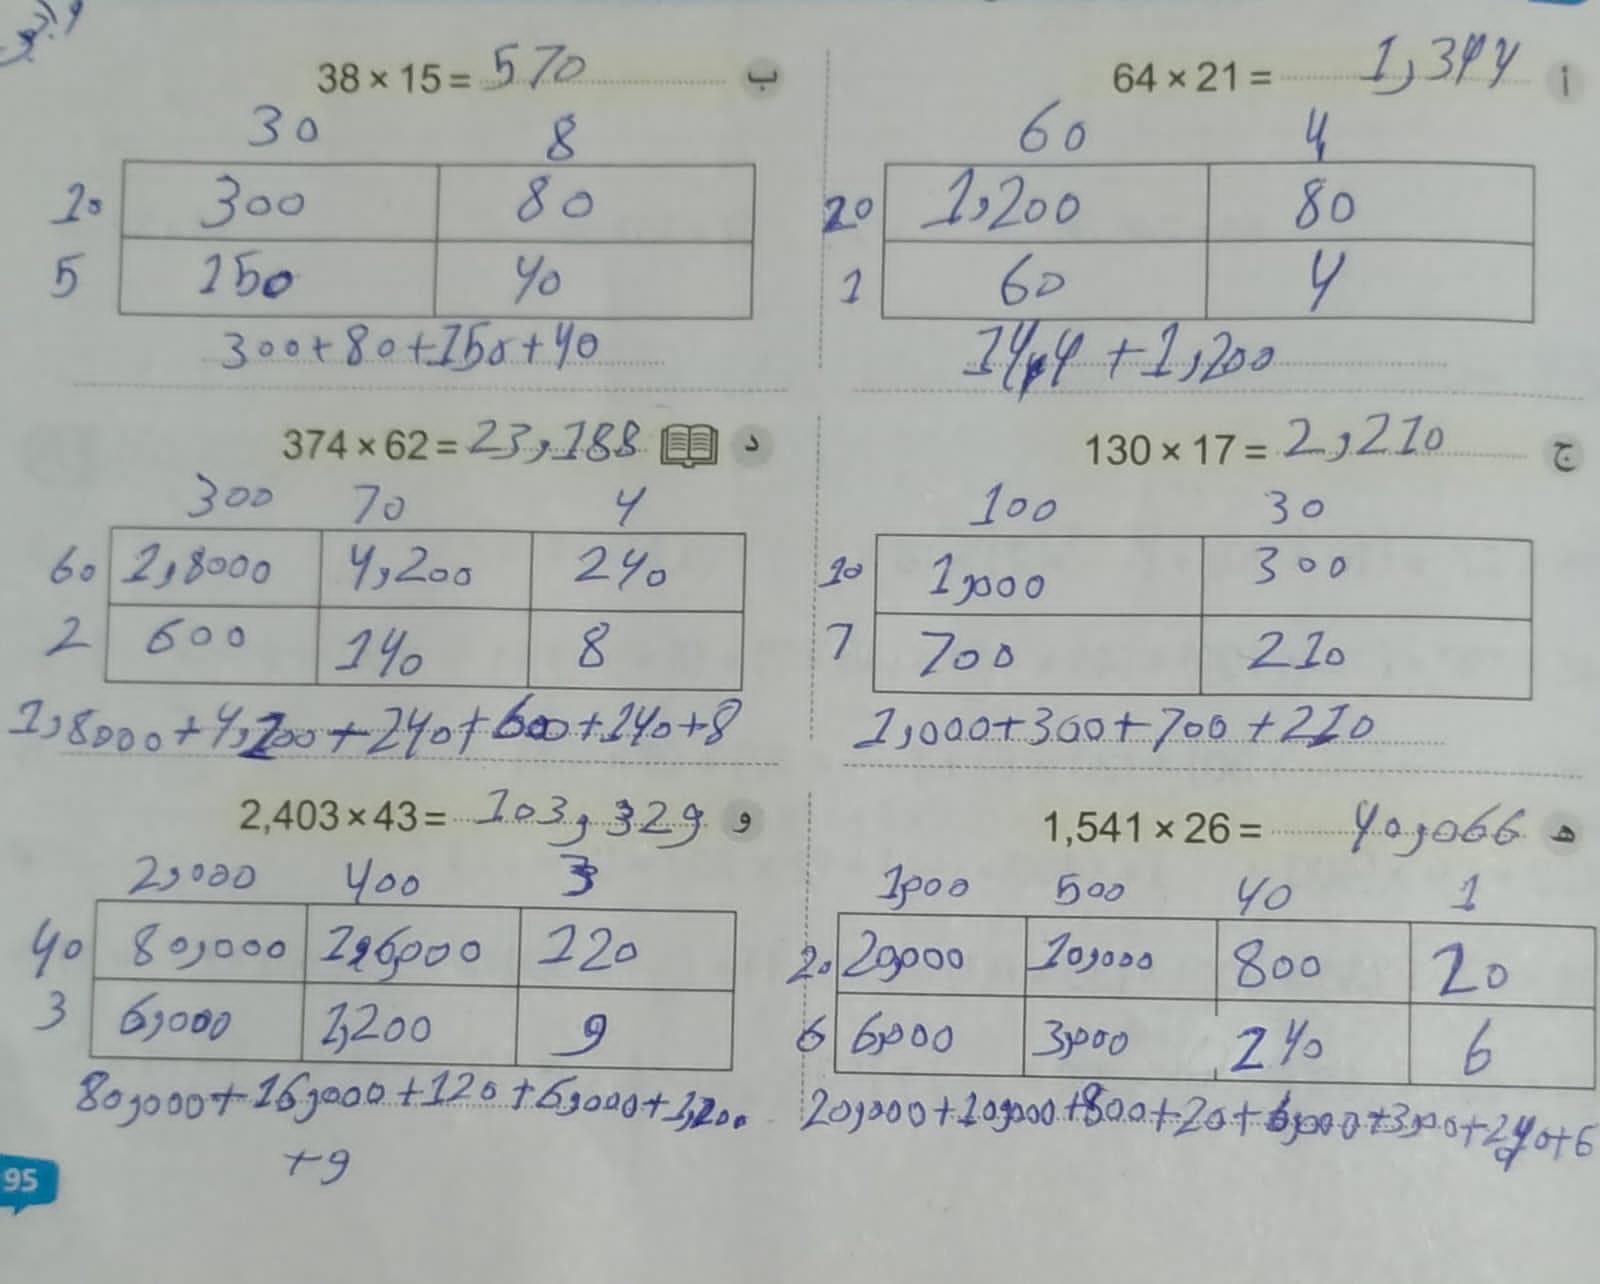 أ 64 × 21 = 1,344
60 4
20 1,200 80
1 60 4
144 + 1,200
ب 38 × 15 = 570
30 8
10 300 80
5 150 40
300+80+150+40
ج 130 × 17 = 2,210
100 30
10 1,000 300
7 700 210
1,000+300+700+210
د 374 × 62 = 23,188
300 70 4
60 1,8000 4,200 240
2 600 140 8
1,8000+4,200+240+600+140+8
ه 1,541 × 26 = 40,066
1,000 500 40 1
20 20,000 10,000 800 20
6 6,000 3,000 240 6
20,000+10,000+800+20+6,000+3,000+240+6
و 2,403 × 43 = 103,329
2,000 400 3
40 80,000 16,000 120
3 6,000 1,200 9
80,000+16,000+120+6,000+1,200
+9
95